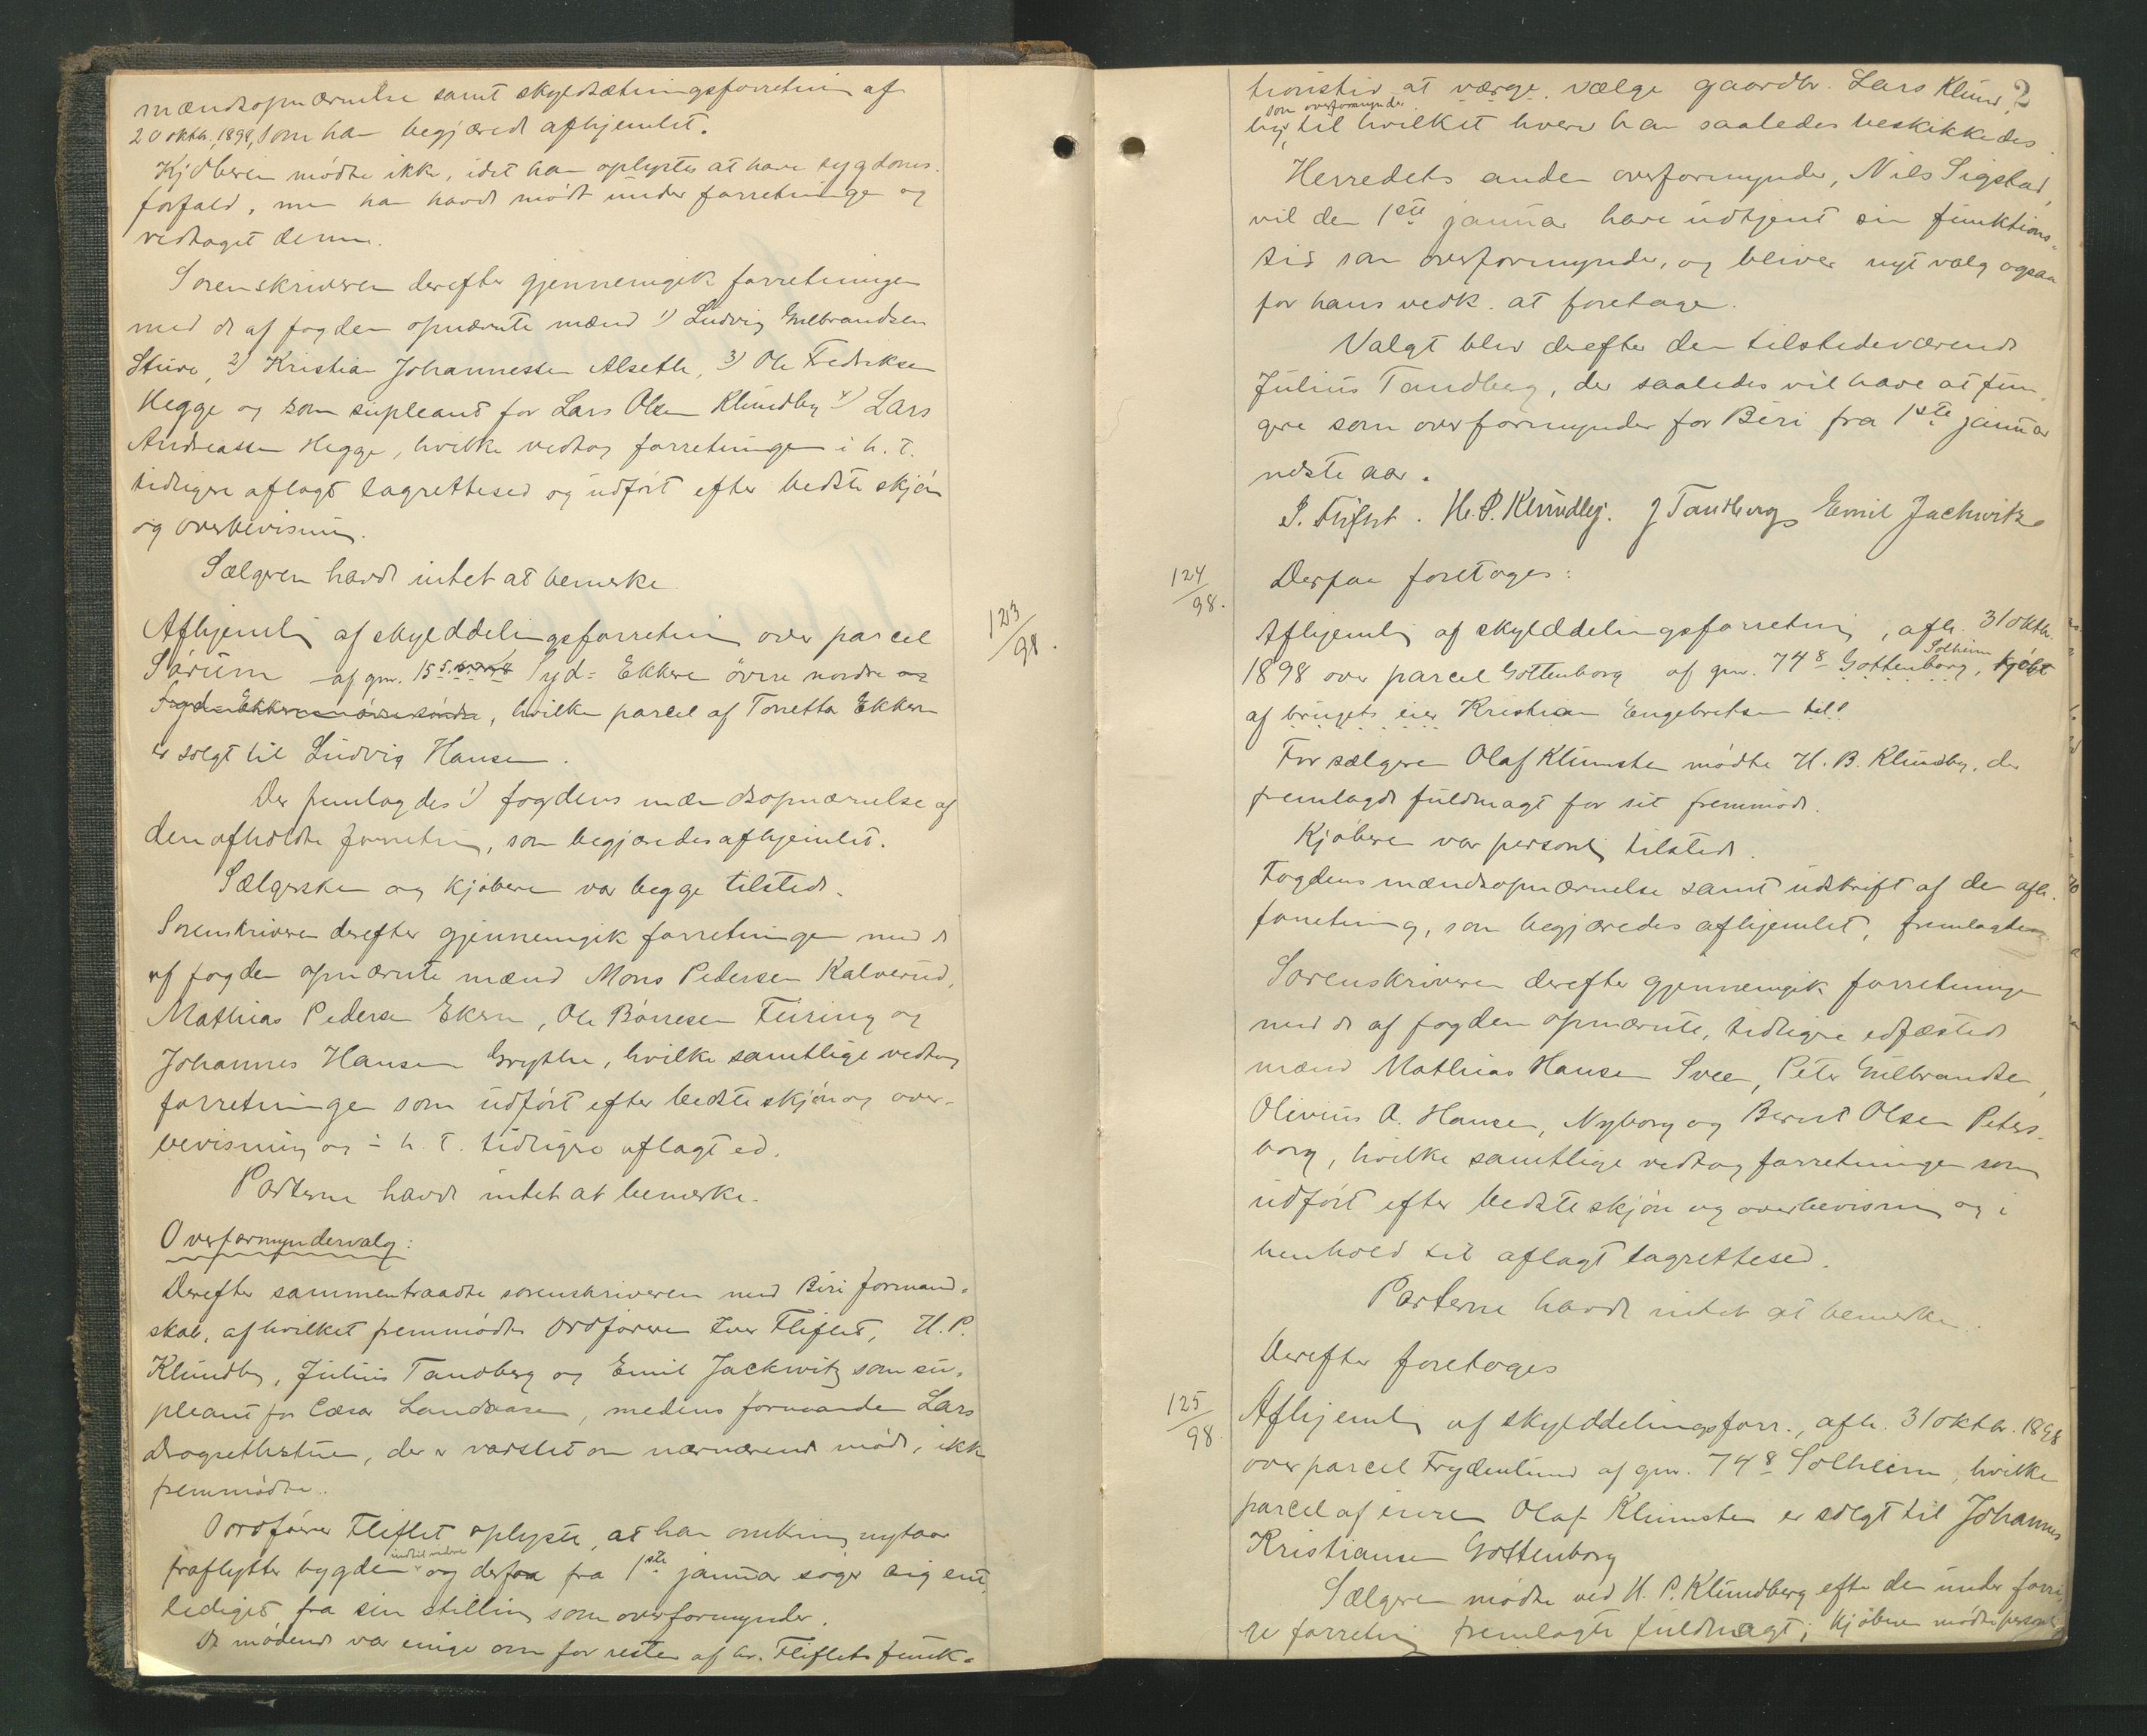 mændsopnævnelse samt skyldsætningsforretning af
20 oktbr. 1898, som han begjærede afhjemlet.
Kjøberen mødte ikke, idet han oplystes at have sygdoms-
forfald, men han havde mødt under forretningen og
vedtaget denne.
Sorenskriveren derefter gjennemgik forretningen
med de af fogden opnævnte mænd 1) Ludvig Gulbrandsen
Sture, 2) Kristian Johannessen Alseth, 3) Ole Fredriksen
Hegge og som supleant for Lars Olsen Klundby 4) Lars
Andreassen Hegge, hvilke vedtog forretningen i h. t.
tidligere aflagt lagrettesed og udført efter bedste skjøn
og overbevisning.
Sælgeren havde intet at bemerke
123/98.
Afhjemling af skylddelingsforretning over parcel
Sørum af gnr. 155 Syd-Ekkern øvre nordre og
Syd-Ekkern øvre søndre, hvilken parcel af Tonetta Ekkern
er solgt til Ludvig Hansen.
Der fremlagdes 1) fogdens mændsopnævnelse af
den afholdte forretning, som begjæredes afhjemlet.
Sælgersken og kjøberen var begge tilstede.
Sorenskriveren derefter gjennemgik forretningen med de
af fogden opnævnte mænd Mons Pedersen Kalverud,
Mathias Pedersen Ekern, Ole Børresen Feiring og
Johannes Hansen Grythe, hvilke samtlige vedtog
forretningen som udført efter bedste skjøn og over-
bevisning og i h. t. tidligere aflagt ed.
Parterne havde intet at bemerke.
Overformyndervalg:
Derefter sammentraadte sorenskriveren med Biri formand-
skab, af hvilket fremmødte ordføreren Iver Fliflet, H. P.
Klundby, Julius Tandberg og Emil Jackwitz som su-
pleant for Cæsar Landaasen, medens formanden Lars
Dragsethstuen, der er varslet om nærværende møde, ikke
fremmødte.
Ordfører Fliflet oplyste, at han omkring nytaar
fraflytter bygden indtil videre og derfor fra 1ste januar søger sig ent-
lediget fra sin stilling som overformynder.
De mødende var enige om for resten af hr. Fliflets funk-
2
tionstid at værge vælge gaardbr. Lars Klund-
by, som overformynder til hvilket hverv han saaledes beskikkedes
Herredets anden overformynder, Nils Sigstad,
vil den 1ste januar have udtjent sin funktions-
tid som overformynder, og bliver nyt valg ogsaa
for hans vedk. at foretage.
Valgt blev derefter den tilstedeværende
Julius Tandberg, der saaledes vil have at fun-
gere som overformynder for Biri fra 1ste januar
næste aar.
I. Fliflet. H. P. Klundby. J Tandberg Emil Jackwitz
124/98.
Derpaa foretoges:
Afhjemling af skylddelingsforretning, afh. 31 oktbr.
1898 over parcel Gottenborg af gnr. 748 Gottenborg, Solheim kjøbt
af brugets eier Kristian Engebretsen till
For sælgeren Olaf Klumsten mødte H. B. Klundby, der
fremlagde fuldmagt for sit fremmøde.
Kjøberen var personlig tilstede.
Fogdens mændsopnævnelse samt udskrift af den afh.
forretning, som begjæredes afhjemlet, fremlagdes
Sorenskriveren derefter gjennemgik forretningen
med de af fogden opnævnte, tidligere edfæstede
mænd Mathias Hansen Svee, Peter Gulbrandsen,
Olivius A. Hansen, Nyborg og Bernt Olsen Peters-
borg, hvilke samtlige vedtog forretningen som
udført efter bedste skjøn og overbevisning og i
henhold til aflagt lagrettesed.
Parterne havde intet at bemerke.
Derefter foretoges
125/98.
Afhjemling af skylddelingsforr., afh. 31 oktbr. 1898
over parcel Frydenlund af gnr. 748 Solheim, hvilken
parcel af eieren Olaf Klumsten er solgt til Johannes
Kristiansen Gottenborg
Sælgeren mødte ved H. P. Klundberg efter den under forri-
ge forretning fremlagte fuldmagt; kjøberen mødte personlig